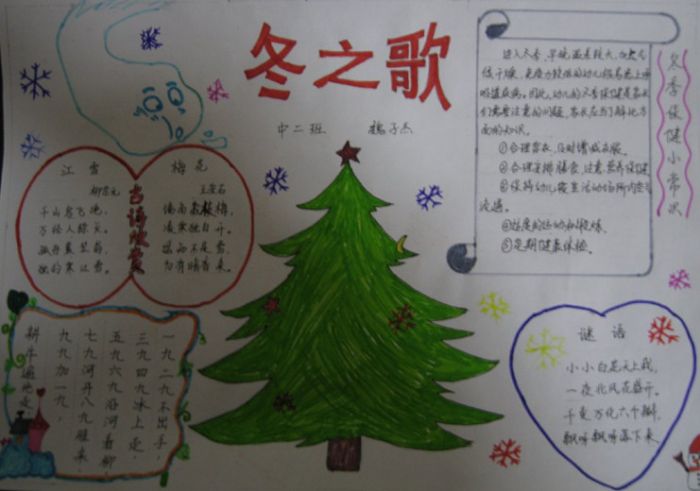 冬之歌
中二班 魏子杰
江雪
柳宗元
千山鸟飞绝，
万径人踪灭。
孤舟蓑笠翁，
独钓寒江雪。
古诗欣赏
梅花
王安石
墙角数枝梅，
凌寒独自开。
遥知不是雪，
为有暗香来。
进入冬季，早晚温差较大，加
低干燥，免疫力较低的幼儿极易患上呼
吸道疾病。因此，幼儿的冬季保健是家长
们需要注意的问题，家长应当了解此方
面的知识。
①合理着衣，及时增减衣服。
②合理安排膳食，注意营养保健
③保持幼儿寝室活动场所内空气
流通。
④适度的运动和锻炼。
⑤定期健康体检。
冬季保健小常识
一九二九不出手，
三九四九冰上走，
五九六九沿河看柳，
七九河开八九雁来，
九九加一九，
耕牛遍地走。
谜语
小小白花天上栽，
一夜北风花盛开。
千变万化六个瓣，
飘呀飘呀落下来